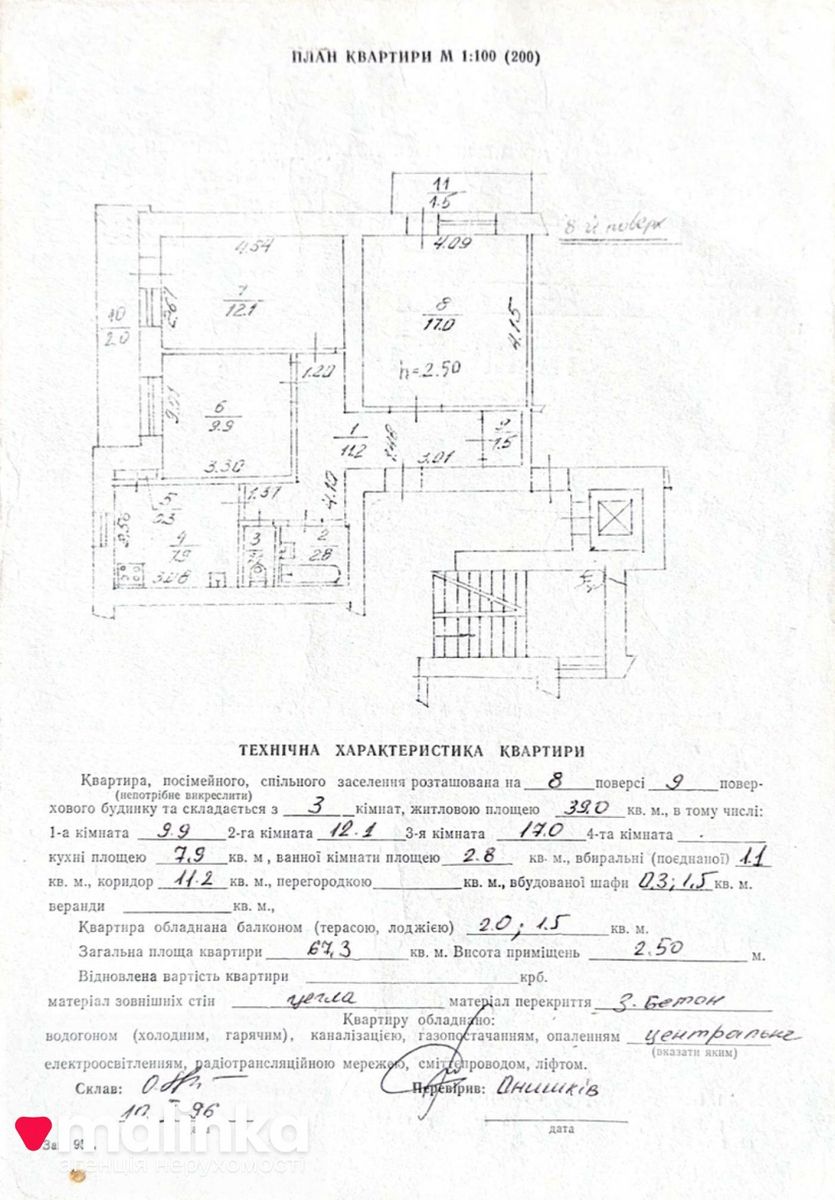 ПЛАН КВАРТИРИ М 1:100 (200)
11
1.5
8 й поверх
4.54
4.09
7
12.1
2.67
8
17.0
4.15
10
2.0
h=2.50
1.20
6
9.9
3.30
1
11.2
1.48
3.01
9
1.5
1.37
4.10
5
0.3
2.56
4
7.9
3.08
3
2
2.8
ТЕХНІЧНА ХАРАКТЕРИСТИКА КВАРТИРИ
Квартира, посімейного, спільного заселення розташована на 8 поверсі 9 повер-
(непотрібне викреслити)
хового будинку та складається з 3 кімнат, житловою площею 39.0 кв. м., в тому числі:
1-а кімната 9.9 2-га кімната 12.1 3-я кімната 17.0 4-та кімната
кухні площею 7.9 кв. м, ванної кімнати площею 2.8 кв. м., вбиральні (поєднаної) 1.1
кв. м., коридор 11.2 кв. м., перегородкою кв. м., вбудованої шафи 0.3; 1.5 кв. м.
веранди кв. м.,
Квартира обладнана балконом (терасою, лоджією) 2.0; 1.5 кв. м.
Загальна площа квартири 67,3 кв. м. Висота приміщень 2.50 м.
Відновлена вартість квартири крб.
матеріал зовнішніх стін цегла матеріал перекриття З. Бетон
Квартиру обладнано:
водогоном (холодним, гарячим), каналізацією, газопостачанням, опаленням центральне
(вказати яким)
електроосвітленням, радіотрансляційною мережею, сміттєпроводом, ліфтом.
Склав: Перевірив: Онишків
10. 96
дата
malinka
агенція нерухомості